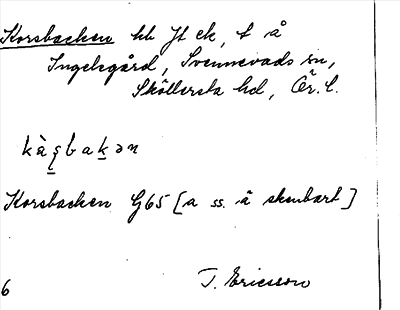 Korsbacken hb Jt ek, t å
Ingelsgård, Svennevads sn,
Sköllersta hd, Ör. l.
kàʂbakən
Korsbacken G65 [a ss. å skenbart]
6
T. Ericsson